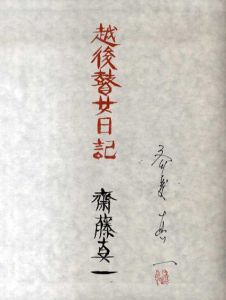 越後瞽女日記
斎藤真一
斎藤真一